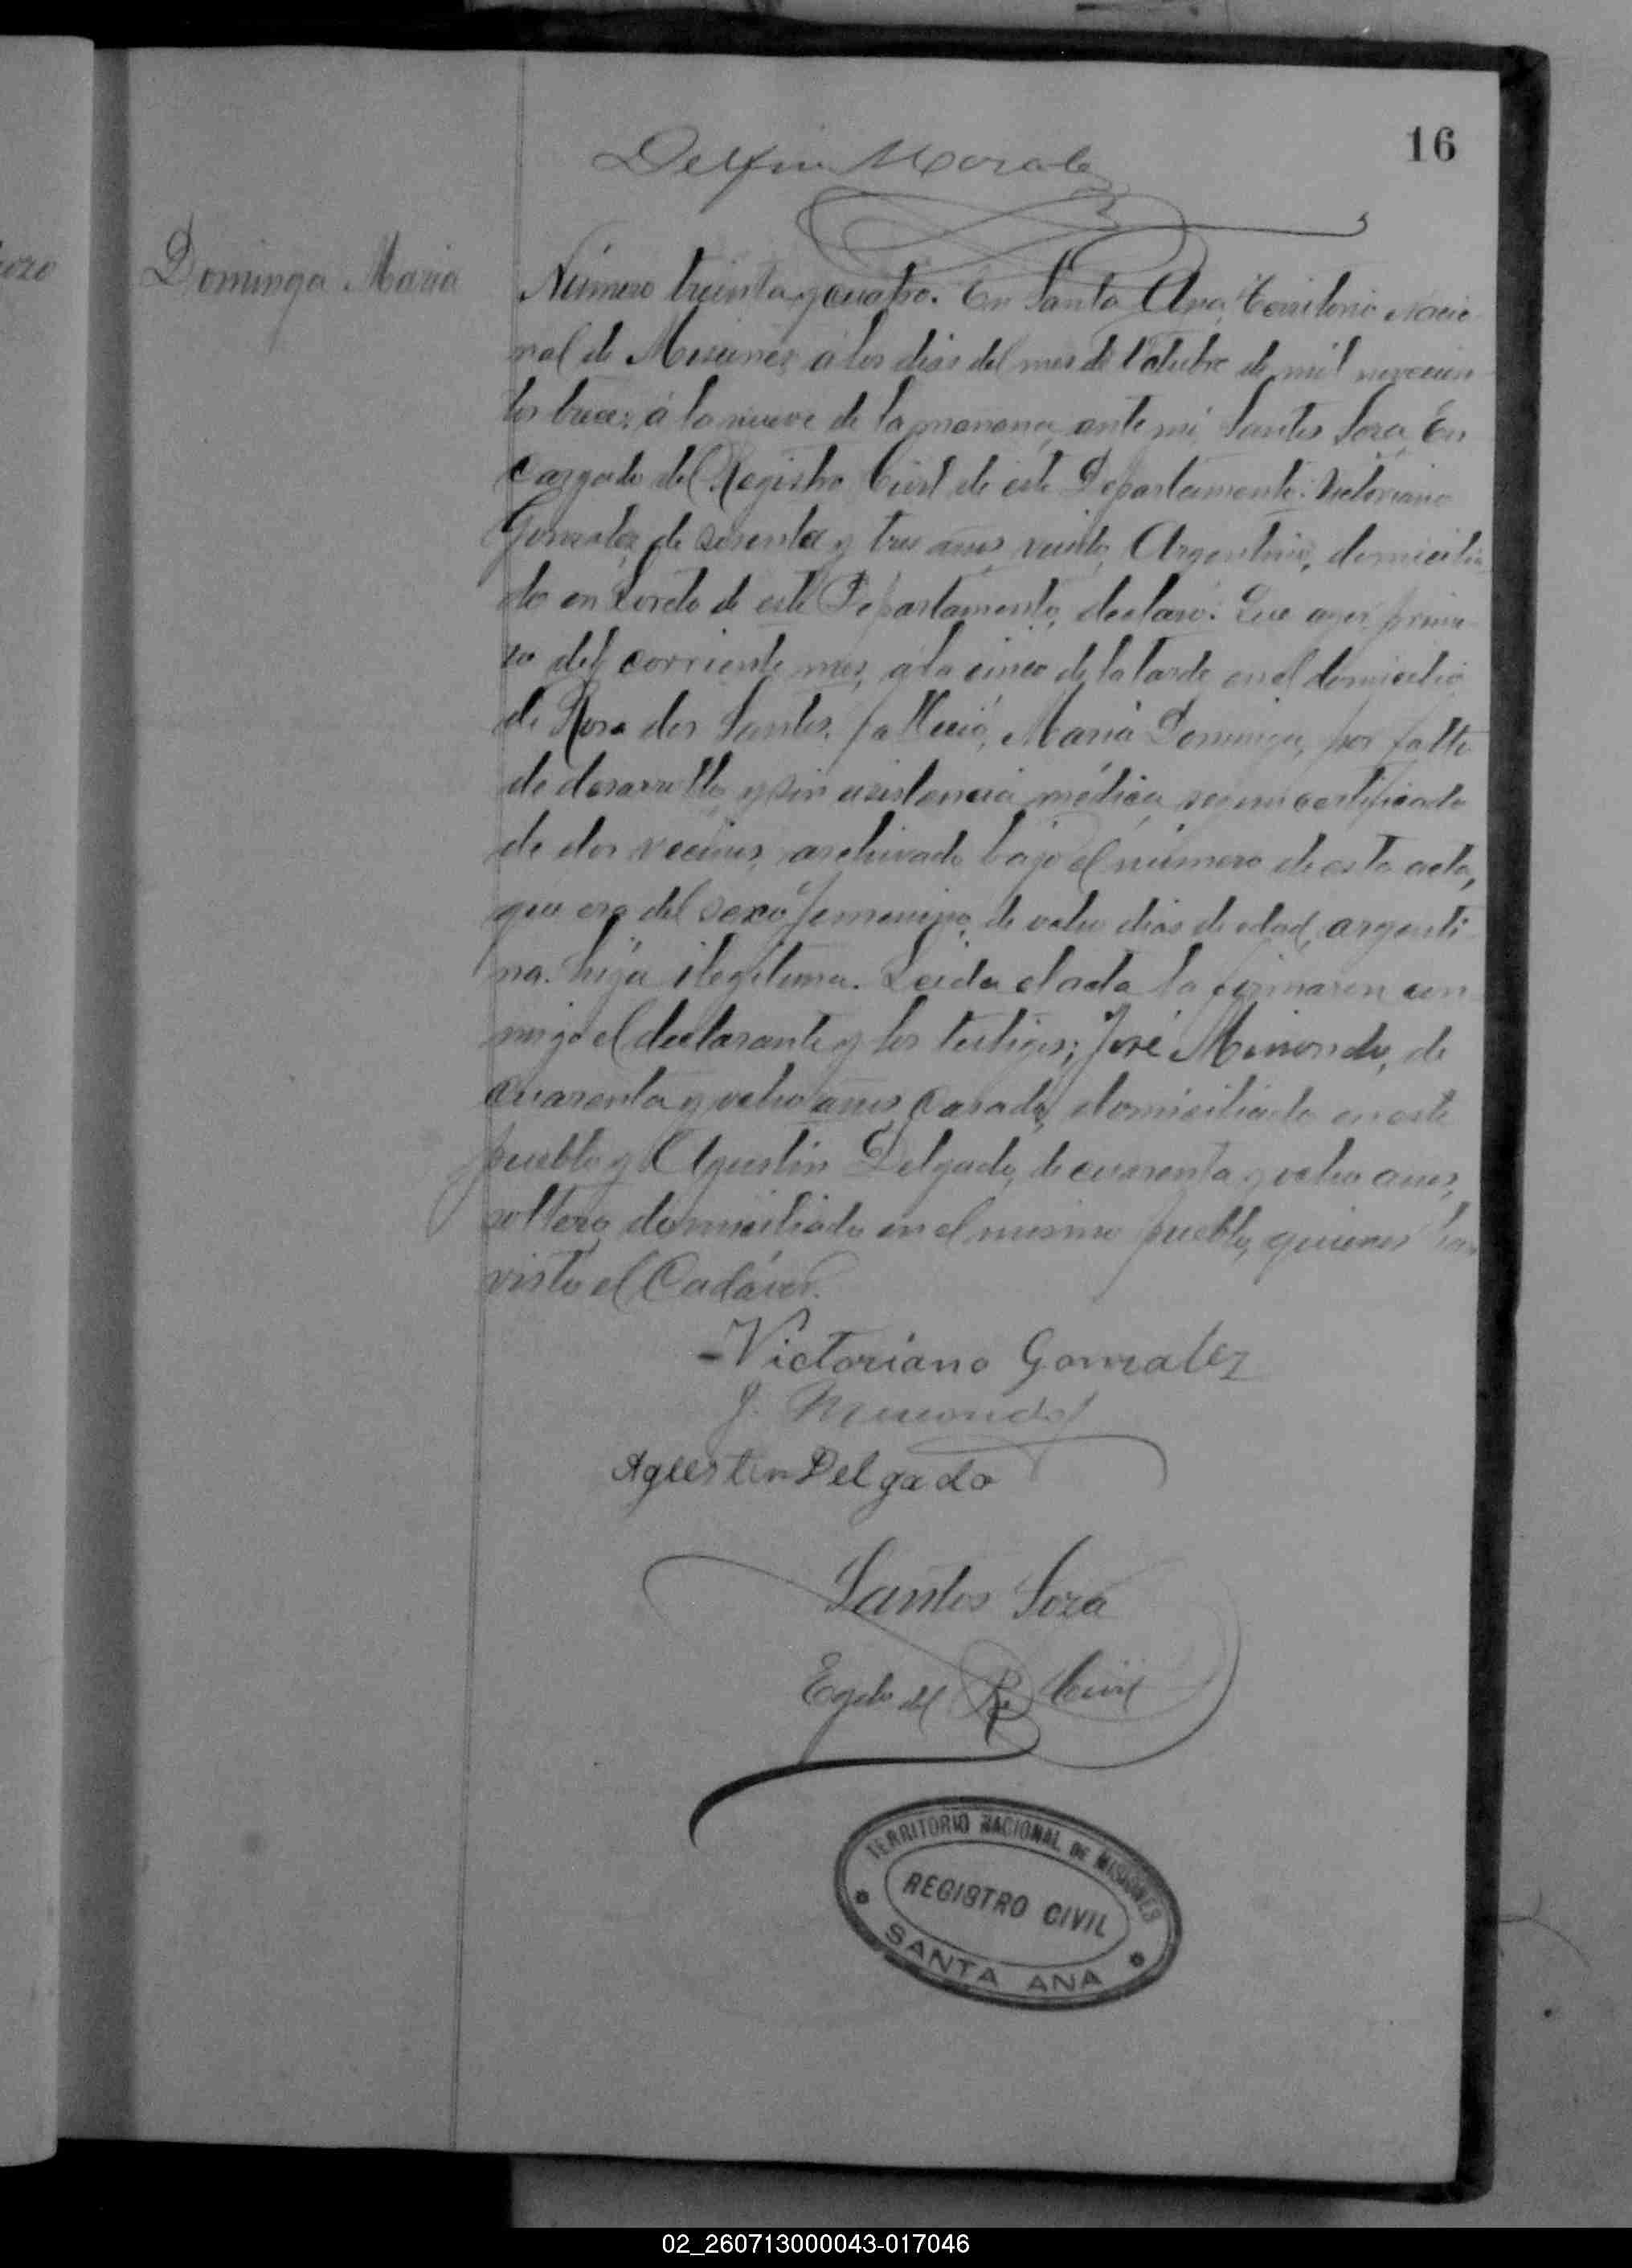 16
Delfin Morales
Dominga Maria
Número treinta y cuatro. En Santa Ana, Territorio Nacio-
nal de Misiones, á los dias del mes de Octubre de mil novecien-
tos trece; á la nueve de la manana, ante mi, Santos Soza, En-
cargado del Registro Civil de este Departamento: Victoriano
Gonzalez, de sesenta y tres años, viudo, Argentino, domicilia-
do en Loreto de este Departamento, declaró: Que ayer, prime-
ro del corriente mes, á la cinco de la tarde, en el domicilio
de Rosa dos Santos, falleció, Maria Dominga, por falta
de desarrollo, y sin asistencia médica, segun certificado
de dos vecinos, archivado bajo el número de esta acta,
que era del sexo femenino, de ocho dias de edad, argenti-
na. hija ilegitima. Leida el acta la firmaron con-
migo el declarante y los testigos; José Mirondo, de
cuarenta y ocho años, Casado, domiciliado en este
pueblo y Agustin Delgado, de cuarenta y ocho anos,
soltero, domiciliado en el mismo pueblo, quienes han
visto el Cadáver.
Victoriano Gonzalez
J.
Agustin Delgado
Santos Soza
Egdo del Rº Civil
TERRITORIO NACIONAL DE MISIONES
REGISTRO CIVIL
SANTA ANA
02_260713000043-017046